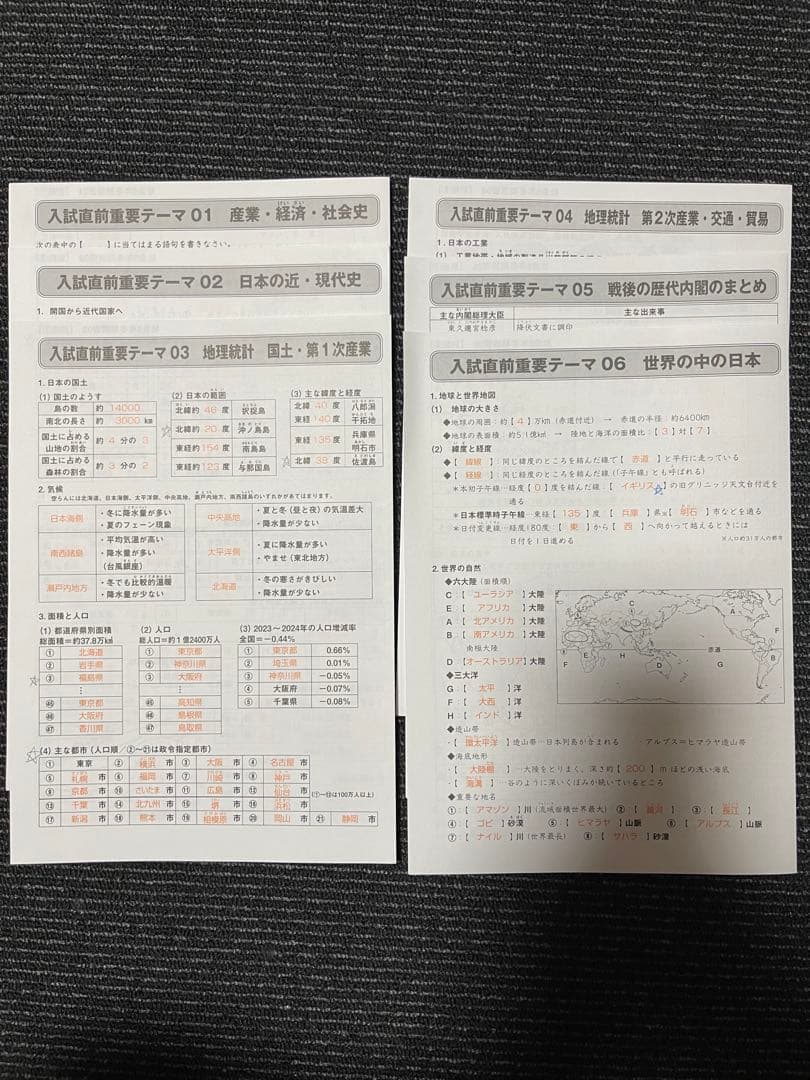 入試直前重要テーマ 01 産業・経済・社会史
次の表中の【 】に当てはまる語句を書きなさい。
入試直前重要テーマ 02 日本の近・現代史
1. 開国から近代国家へ
入試直前重要テーマ 03 地理統計 国土・第1次産業
1. 日本の国土
(1) 国土のようす
島の数 約 14000
南北の長さ 約 3000 km
国土に占める山地の割合 約 4 分の 3
国土に占める森林の割合 約 3 分の 2
(2) 日本の範囲
北緯約 46 度 択捉島
北緯約 20 度 沖ノ鳥島
東経約 154 度 南鳥島
東経約 123 度 与那国島
(3) 主な緯度と経度
北緯 40 度 八郎潟
東経 140 度 干拓地
東経 135 度 兵庫県明石市
北緯 38 度 佐渡島
2. 気候
空らんには北海道、日本海側、太平洋側、中央高地、瀬戸内地方、南西諸島のいずれかがあてはまります。
日本海側 ・冬に降水量が多い
・夏のフェーン現象
中央高地 ・夏と冬(昼と夜)の気温差大
・降水量が少ない
南西諸島 ・平均気温が高い
・降水量が多い
(台風銀座)
太平洋側 ・夏に降水量が多い
・やませ(東北地方)
瀬戸内地方 ・冬でも比較的温暖
・降水量が少ない
北海道 ・冬の寒さがきびしい
・降水量が少ない
3. 面積と人口
(1) 都道府県別面積
総面積=約37.8万km²
① 北海道
② 岩手県
③ 福島県
⋮
㊺ 東京都
㊻ 大阪府
㊼ 香川県
(2) 人口
総人口=約1億2400万人
① 東京都
② 神奈川県
③ 大阪府
⋮
㊺ 高知県
㊻ 島根県
㊼ 鳥取県
(3) 2023~2024年の人口増減率
全国=-0.44%
① 東京都 0.66%
② 埼玉県 0.01%
③ 神奈川県 -0.05%
④ 大阪府 -0.07%
⑤ 千葉県 -0.08%
(4) 主な都市(人口順/②~㉑は政令指定都市)
① 東京 ② 横浜 市 ③ 大阪 市 ④ 名古屋 市
⑤ 札幌 市 ⑥ 福岡 市 ⑦ 川崎 市 ⑧ 神戸 市
⑨ 京都 市 ⑩ さいたま 市 ⑪ 広島 市 ⑫ 仙台 市 (①~⑫は100万人以上)
⑬ 千葉 市 ⑭ 北九州 市 ⑮ 堺 市 ⑯ 浜松 市
⑰ 新潟 市 ⑱ 熊本 市 ⑲ 相模原 市 ⑳ 岡山 市 ㉑ 静岡 市
入試直前重要テーマ 04 地理統計 第2次産業・交通・貿易
1. 日本の工業
入試直前重要テーマ 05 戦後の歴代内閣のまとめ
主な内閣総理大臣 主な出来事
東久邇宮稔彦 降伏文書に調印
入試直前重要テーマ 06 世界の中の日本
1. 地球と世界地図
(1) 地球の大きさ
◆地球の周囲:約【 4 】万km(赤道付近) → 赤道の半径:約6400km
◆地球の表面積:約5.1億km² → 陸地と海洋の面積比:【 3 】対【 7 】
(2) 緯度と経度
◆【 緯線 】:同じ緯度のところを結んだ線で【 赤道 】と平行に走っている
◆【 経線 】:同じ経度のところを結んだ線(「子午線」とも呼ばれる)
*本初子午線…経度【 0 】度を結んだ線:【 イギリス 】の旧グリニッジ天文台付近を通る
*日本標準時子午線…東経【 135 】度 【 兵庫 】県【 明石 】市などを通る
*日付変更線…経度180度:【 東 】から【 西 】へ向かって越えるときには
日付を1日進める
2. 世界の自然
◆六大陸(面積順)
C【 ユーラシア 】大陸
E【 アフリカ 】大陸
A【 北アメリカ 】大陸
B【 南アメリカ 】大陸
南極大陸
D【オーストラリア】大陸
◆三大洋
G【 太平 】洋
F【 大西 】洋
H【 インド 】洋
C
A
G
赤道
B
F
E
H
D
F
◆造山帯
・【 環太平洋 】造山帯…日本列島が含まれる ・アルプス=ヒマラヤ造山帯
◆海底地形
・【 大陸棚 】…大陸をとりまく、深さ約【 200 】mほどの浅い海底
・【 海溝 】…谷のように深いくぼみが続いているところ
◆重要な地名
①:【 アマゾン 】川(流域面積世界最大) ②:【 黄河 】 ③:【 長江 】
④:【 ゴビ 】砂漠 ⑤:【 ヒマラヤ 】山脈 ⑥:【 アルプス 】山脈
⑦:【 ナイル 】川(世界最長) ⑧:【 サハラ 】砂漠